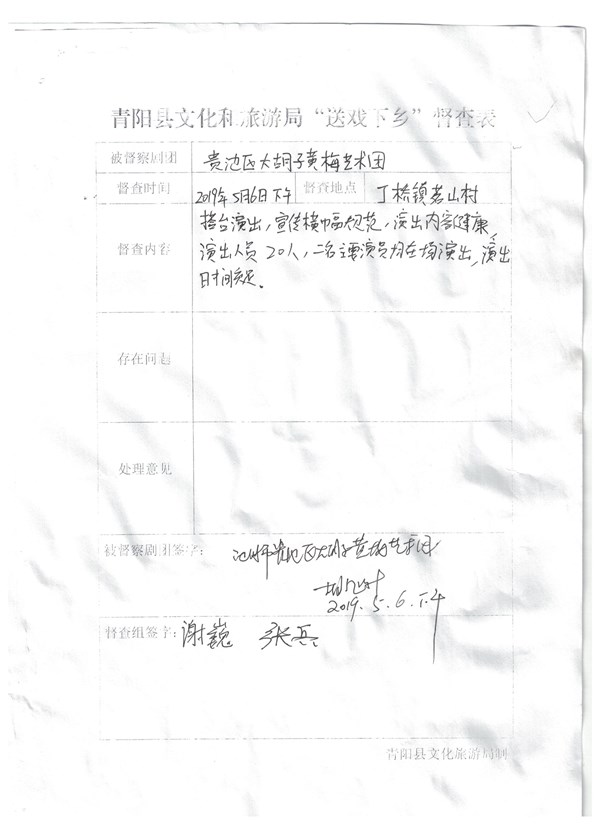 青阳县文化和旅游局“送戏下乡”督查表
被督察剧团 贵池区大胡子黄梅艺术团
督查时间 2019年5月6日下午 督查地点 丁桥镇茗山村
督查内容 搭台演出，宣传横幅规范，演出内容健康，
演出人员20人，二名主要演员均在场演出，演出
时间
存在问题
处理意见
被督察剧团签字： 池州市贵池区大胡子黄梅艺术团
2019.5.6.下午
督查组签字： 谢巍 张兵
青阳县文化旅游局制